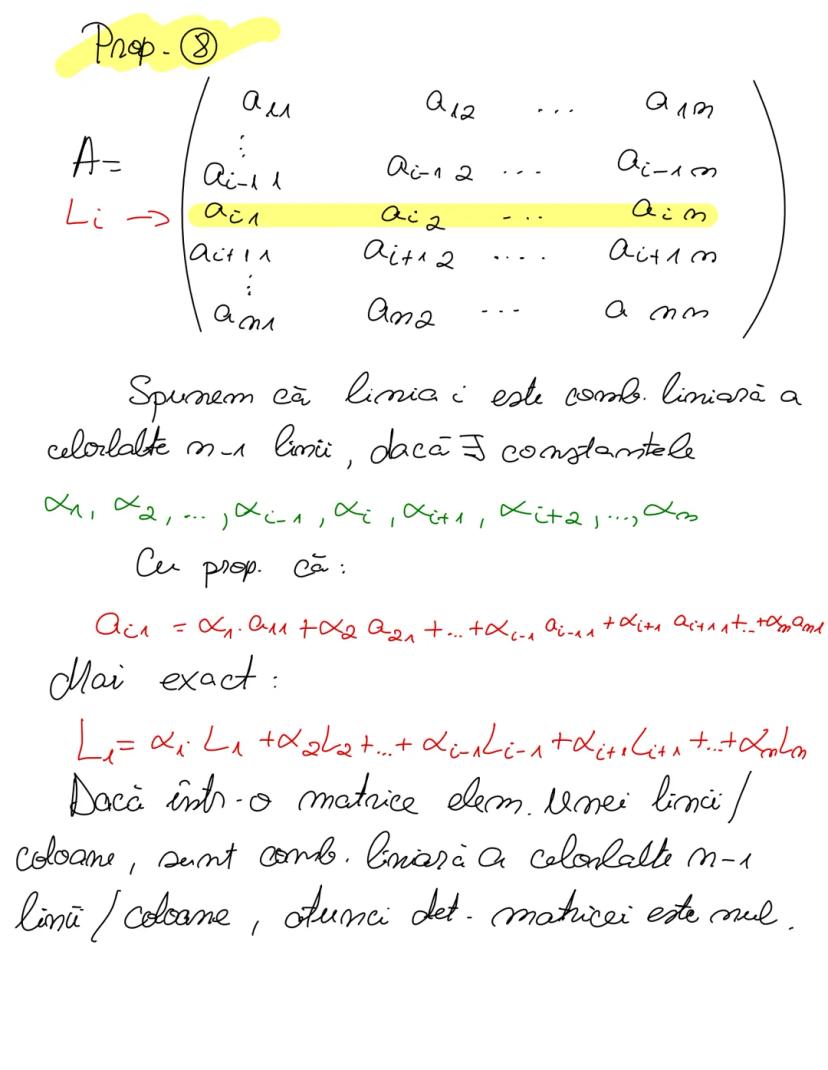 Prop. ⑧
A= a11 a12 ... a1n
⋮
ai-11 ai-12 ... ai-1n
Li → ai1 ai2 ... ain
ai+11 ai+12 .... ai+1n
⋮
an1 an2 ... ann
Spunem că linia i este comb. liniară a
celorlalte n-1 linii, dacă ∃ constantele
α1, α2, ..., αi-1, αi, αi+1, αi+2, ..., αn
Cu prop. că:
ai1 = α1·a11 + α2 a21 +...+ αi-1 ai-11 + αi+1 ai+11 +...+ αn an1
Mai exact:
Li = α1· L1 + α2L2 +...+ αi-1Li-1 + αi+1Li+1 +...+ αnLn
Dacă într-o matrice elem. unei linii/
coloane, sunt comb. liniară a celorlalte n-1
linii / coloane, atunci det. matricei este nul.